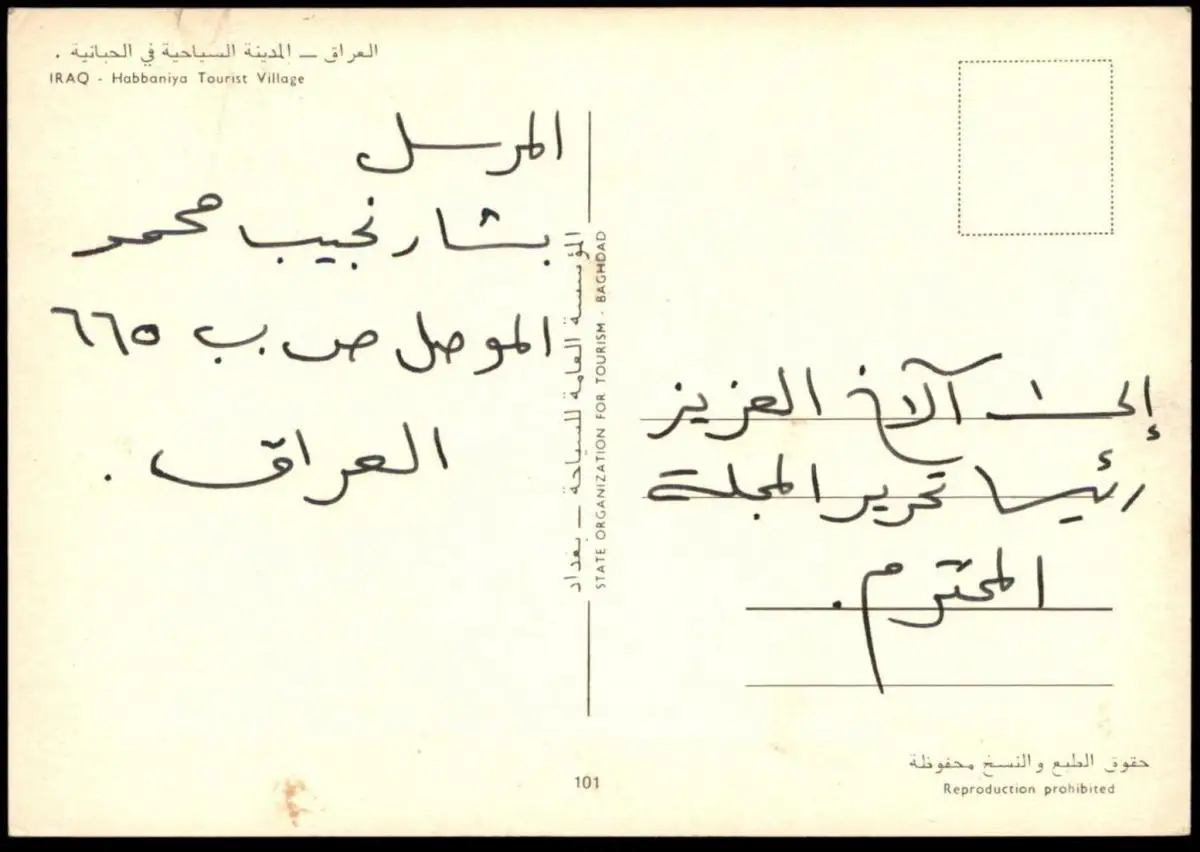 العراق ـ المدينة السياحية في الحبانية .
IRAQ - Habbaniya Tourist Village
المرسل
بشار نجيب محمد
الموصل ص.ب ٦٦٥
العراق .
المؤسسة العامة للسياحة ـ بغداد
STATE ORGANIZATION FOR TOURISM - BAGHDAD
إلى الأخ العزيز
رئيس تحرير المجلة
المحترم .
حقوق الطبع والنسخ محفوظة
Reproduction prohibited
101